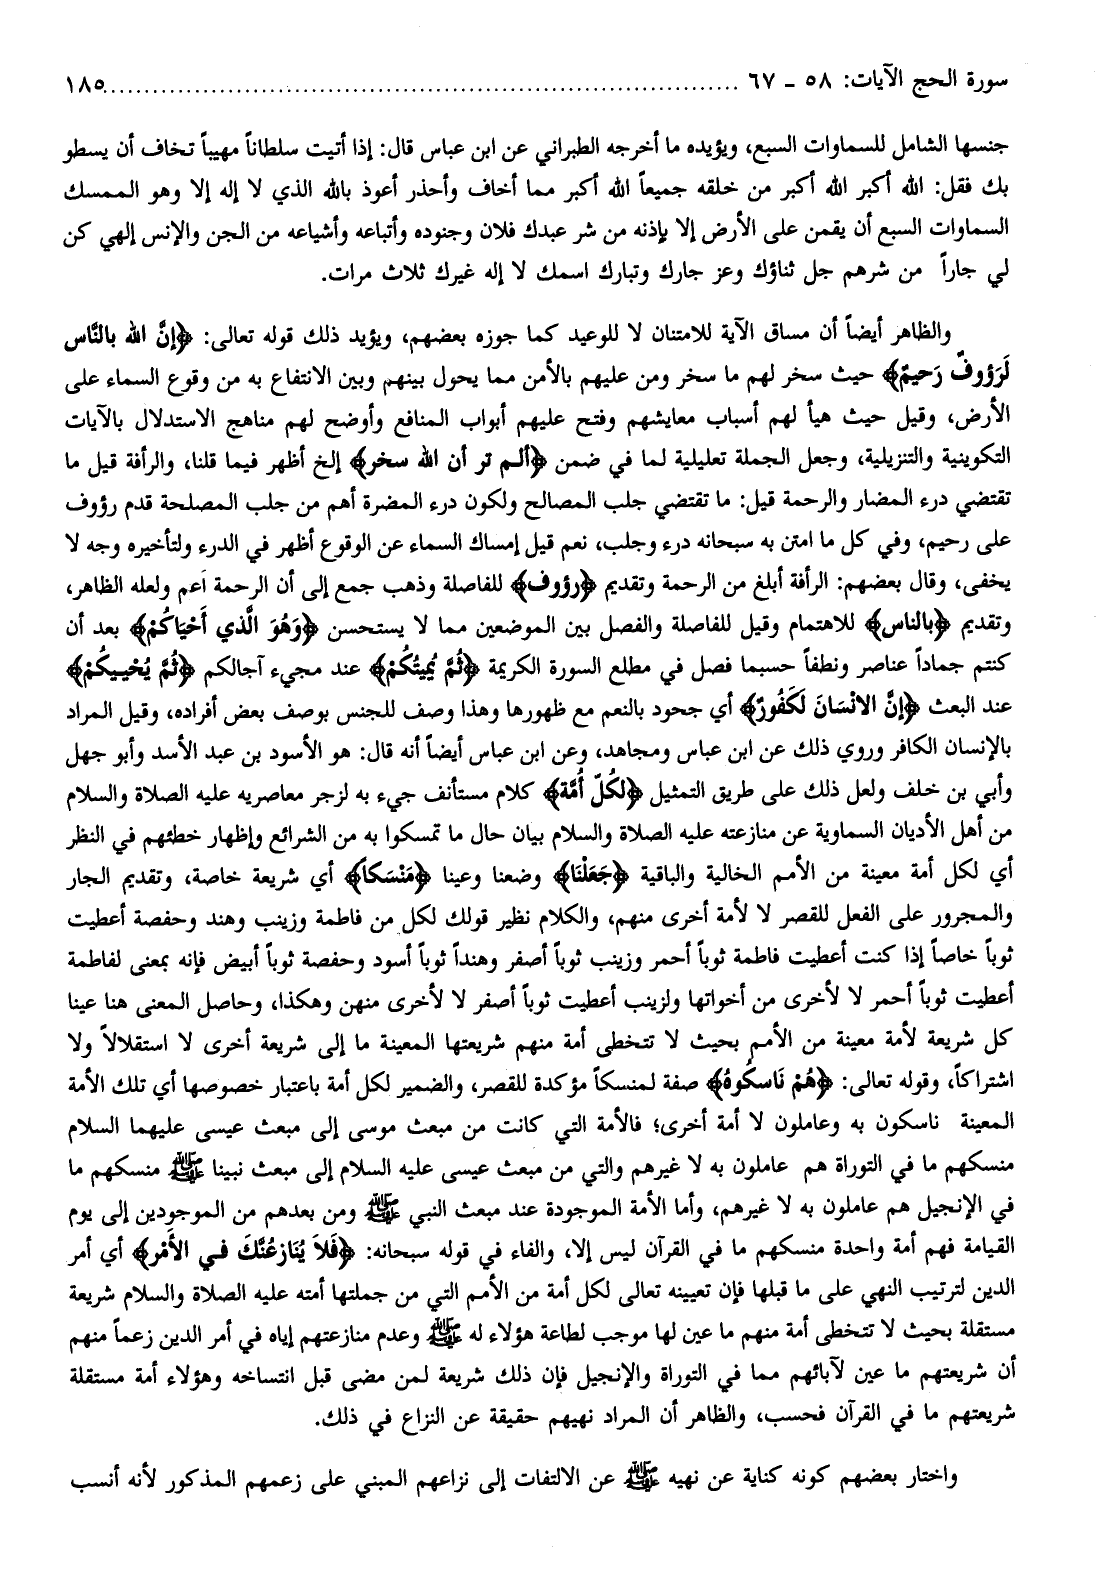 سورة الحج الآيات: ٥٨ ـ ٦٧ ........................................................................... ١٨٥
جنسها الشامل للسماوات السبع، ويؤيده ما أخرجه الطبراني عن ابن عباس قال: إذا أتيت سلطاناً مهيباً تخاف أن يسطو
بك فقل: الله أكبر الله أكبر من خلقه جميعاً الله أكبر مما أخاف وأحذر أعوذ بالله الذي لا إله إلا وهو الممسك
السماوات السبع أن يقمن على الأرض إلا بإذنه من شر عبدك فلان وجنوده وأتباعه وأشياعه من الجن والإنس إلهي كن
لي جاراً من شرهم جل ثناؤك وعز جارك وتبارك اسمك لا إله غيرك ثلاث مرات.
والظاهر أيضاً أن مساق الآية للامتنان لا للوعيد كما جوزه بعضهم، ويؤيد ذلك قوله تعالى: ﴿إنَّ الله بالنَّاس
لَرَؤوفٌ رَحيمٌ﴾ حيث سخر لهم ما سخر ومن عليهم بالأمن مما يحول بينهم وبين الانتفاع به من وقوع السماء على
الأرض، وقيل حيث هيأ لهم أسباب معايشهم وفتح عليهم أبواب المنافع وأوضح لهم مناهج الاستدلال بالآيات
التكوينية والتنزيلية، وجعل الجملة تعليلية لما في ضمن ﴿ألم تر أن الله سخر﴾ إلخ أظهر فيما قلنا، والرأفة قيل ما
تقتضي درء المضار والرحمة قيل: ما تقتضي جلب المصالح ولكون درء المضرة أهم من جلب المصلحة قدم رؤوف
على رحيم، وفي كل ما امتن به سبحانه درء وجلب، نعم قيل إمساك السماء عن الوقوع أظهر في الدرء ولتأخيره وجه لا
يخفى، وقال بعضهم: الرأفة أبلغ من الرحمة وتقديم ﴿رؤوف﴾ للفاصلة وذهب جمع إلى أن الرحمة أعم ولعله الظاهر،
وتقديم ﴿بالناس﴾ للاهتمام وقيل للفاصلة والفصل بين الموضعين مما لا يستحسن ﴿وَهُوَ الَّذي أَحْيَاكُمْ﴾ بعد أن
كنتم جماداً عناصر ونطفاً حسبما فصل في مطلع السورة الكريمة ﴿ثُمَّ يُميتُكُمْ﴾ عند مجيء آجالكم ﴿ثُمَّ يُحْييكُمْ﴾
عند البعث ﴿إنَّ الانْسَانَ لَكَفُورٌ﴾ أي جحود بالنعم مع ظهورها وهذا وصف للجنس بوصف بعض أفراده، وقيل المراد
بالإنسان الكافر وروي ذلك عن ابن عباس ومجاهد، وعن ابن عباس أيضاً أنه قال: هو الأسود بن عبد الأسد وأبو جهل
وأبي بن خلف ولعل ذلك على طريق التمثيل ﴿لكُلّ أُمَّة﴾ كلام مستأنف جيء به لزجر معاصريه عليه الصلاة والسلام
من أهل الأديان السماوية عن منازعته عليه الصلاة والسلام بيان حال ما تمسكوا به من الشرائع وإظهار خطئهم في النظر
أي لكل أمة معينة من الأمم الخالية والباقية ﴿جَعَلْنَا﴾ وضعنا وعينا ﴿مَنْسَكاً﴾ أي شريعة خاصة، وتقديم الجار
والمجرور على الفعل للقصر لا لأمة أخرى منهم، والكلام نظير قولك لكل من فاطمة وزينب وهند وحفصة أعطيت
ثوباً خاصاً إذا كنت أعطيت فاطمة ثوباً أحمر وزينب ثوباً أصفر وهنداً ثوباً أسود وحفصة ثوباً أبيض فإنه بمعنى لفاطمة
أعطيت ثوباً أحمر لا لأخرى من أخواتها ولزينب أعطيت ثوباً أصفر لا لأخرى منهن وهكذا، وحاصل المعنى هنا عينا
كل شريعة لأمة معينة من الأمم بحيث لا تتخطى أمة منهم شريعتها المعينة ما إلى شريعة أخرى لا استقلالاً ولا
اشتراكاً، وقوله تعالى: ﴿هُمْ نَاسكُوهُ﴾ صفة لمنسكاً مؤكدة للقصر، والضمير لكل أمة باعتبار خصوصها أي تلك الأمة
المعينة ناسكون به وعاملون لا أمة أخرى؛ فالأمة التي كانت من مبعث موسى إلى مبعث عيسى عليهما السلام
منسكهم ما في التوراة هم عاملون به لا غيرهم والتي من مبعث عيسى عليه السلام إلى مبعث نبينا ﷺ منسكهم ما
في الإنجيل هم عاملون به لا غيرهم، وأما الأمة الموجودة عند مبعث النبي ﷺ ومن بعدهم من الموجودين إلى يوم
القيامة فهم أمة واحدة منسكهم ما في القرآن ليس إلا، والفاء في قوله سبحانه: ﴿فَلاَ يُنَازعُنَّكَ في الأَمْر﴾ أي أمر
الدين لترتيب النهي على ما قبلها فإن تعيينه تعالى لكل أمة من الأمم التي من جملتها أمته عليه الصلاة والسلام شريعة
مستقلة بحيث لا تتخطى أمة منهم ما عين لها موجب لطاعة هؤلاء له ﷺ وعدم منازعتهم إياه في أمر الدين زعماً منهم
أن شريعتهم ما عين لآبائهم مما في التوراة والإنجيل فإن ذلك شريعة لمن مضى قبل انتساخه وهؤلاء أمة مستقلة
شريعتهم ما في القرآن فحسب، والظاهر أن المراد نهيهم حقيقة عن النزاع في ذلك.
واختار بعضهم كونه كناية عن نهيه ﷺ عن الالتفات إلى نزاعهم المبني على زعمهم المذكور لأنه أنسب